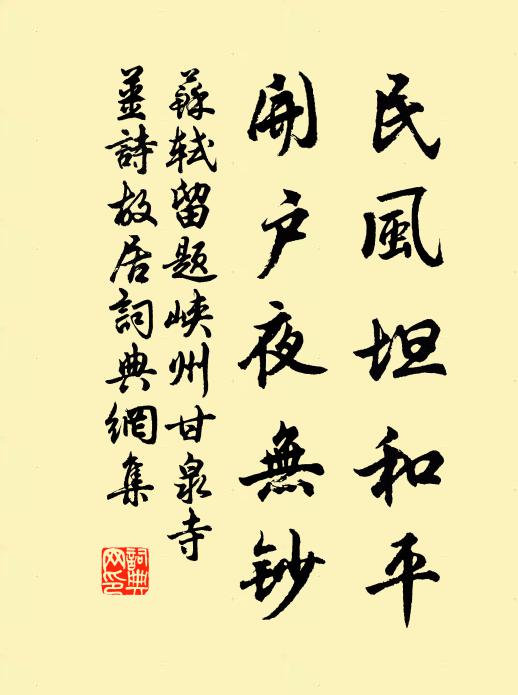 民風坦和平
開户夜無鈔
蘇軾留題峽州甘泉寺
薑詩故居詞典網集
詞典网印